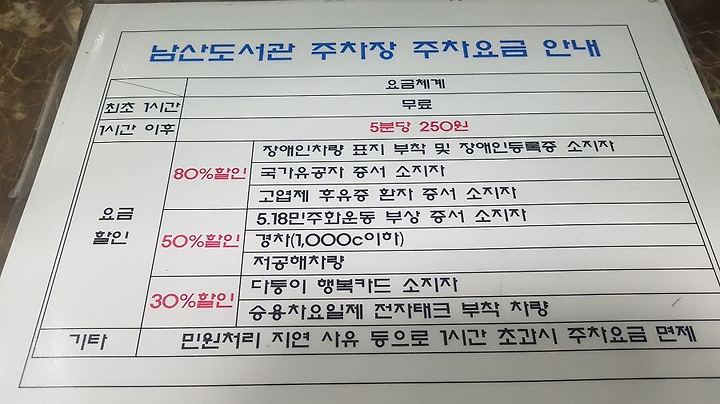 남산도서관 주차장 주차요금 안내
요금체계
최초 1시간 무료
1시간 이후 5분당 250원
요금 할인
80%할인
장애인차량 표지 부착 및 장애인등록증 소지자
국가유공자 증서 소지자
고엽제 후유증 환자 증서 소지자
50%할인
5.18민주화운동 부상 증서 소지자
경차(1,000c이하)
저공해차량
30%할인
다둥이 행복카드 소지자
승용차요일제 전자태크 부착 차량
기타 민원처리 지연 사유 등으로 1시간 초과시 주차요금 면제